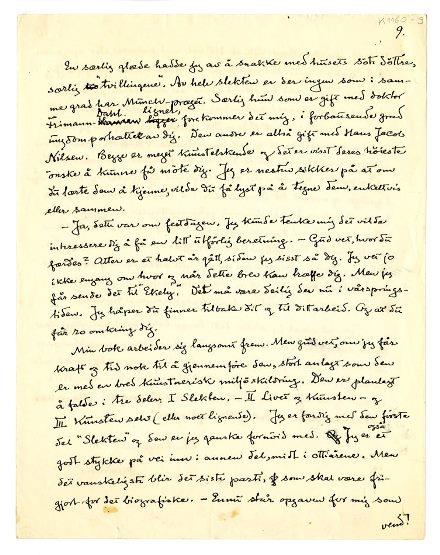 K 1160-3
9.
En særlig glæde hadde jeg av å snakke med husets søte döttre,
særlig "tvillingene". Av hele slekten er der ingen som i sam-
me grad har Munch-præget. Særlig hun som er gift med doktor
Frimann-Dahl ligner, forekommer det mig, i forbausende grad
ungdomsportrættet av dig. Den andre er altså gift med Hans Jacob
Nilsen. Begge er meget kunstelskende og det er visst deres höieste
önske å kunne få möte dig. Jeg er næsten sikker på at om
du lærte dem å kjenne, vilde du få lyst på å tegne dem, enkeltvis
eller sammen.
- Ja, dette var om festdagen. Jeg kunde tænke mig det vilde
interessere dig å få en litt utförlig beretning. - Gud vet, hvor du
færdes? Atter er et halvt år gått, siden jeg sisst så dig. Jeg vet jo
ikke engang om hvor og når dette brev kan træffe dig. Men jeg
får sende det til "Ekely". Det må være deilig der nu i vårsprings-
tiden. Jeg håper du finner tilbake dit og til dit arbeid. Og at du
får ro omkring dig.
Min bok arbeider sig langsomt frem. Men gud vet, om jeg får
kraft og tid nok til å gjennemföre den, stort anlagt som den
er med en bred kunstnerisk miljöskildring. Den er planlagt
å falde i tre deler: I Slekten. - II Livet og Kunsten - og
III Kunsten selv (eller noe lignende). Jeg er færdig med den förste
del "Slekten" og den er jeg ganske fornöid med. Jeg er også et
godt stykke på vei inn i annen del, midt i ottiårene. Men
det vanskeligste blir det siste parti, som skal være fri-
gjort for det biografiske. - Ennu står opgaven for mig som
vend!